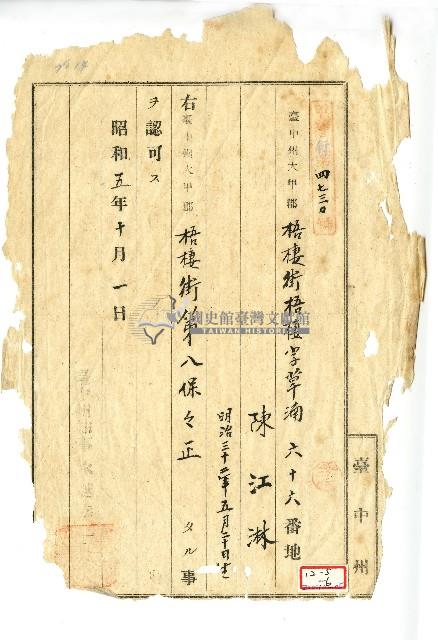 四七三〇
臺中州大甲郡梧棲街梧棲字草湳六十六番地
陳江淋
明治三十二年五月二十日生
右臺中州大甲郡梧棲街第八保々正タル事
ヲ認可ス
昭和五年十月一日
臺中州
國史館臺灣文獻館
TAIWAN HISTORICA
12-5
-6